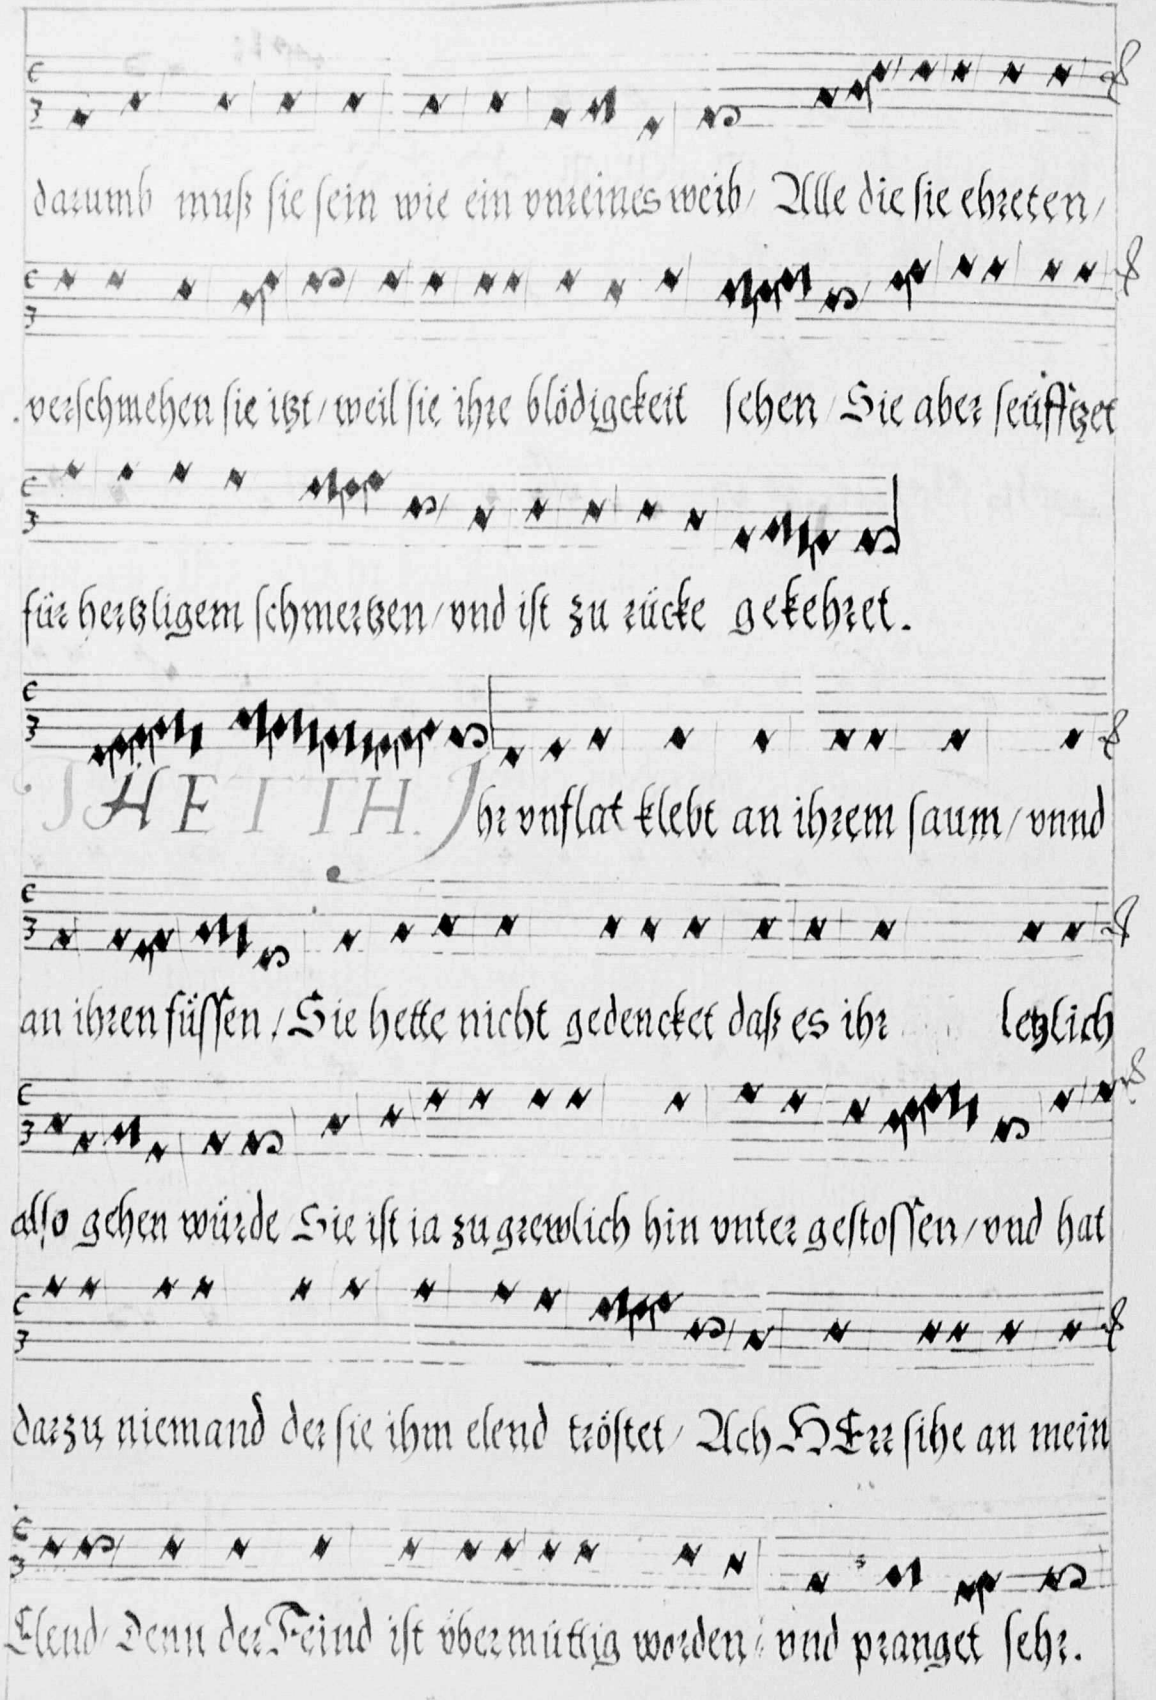 darumb muß sie sein wie ein vnreines weib/ Alle die sie ehreten/
verschmehen sie itzt/ weil sie ihre blödigckeit sehen/ Sie aber seüfftzet
für hertzligem schmertzen/ vnd ist zu rücke gekehret.
HETTH. Ihr vnflat klebt an ihrem saum/ vnnd
an ihren füssen/ Sie hette nicht gedencket daß es ihr letzlich
also gehen würde Sie ist ia zu grewlich hin vnter gestossen/ vnd hat
darzu niemand der sie ihm elend tröstet/ Ach HErr sihe an mein
Elend/ Denn der Feind ist vbermüttig worden/ vnd pranget sehr.